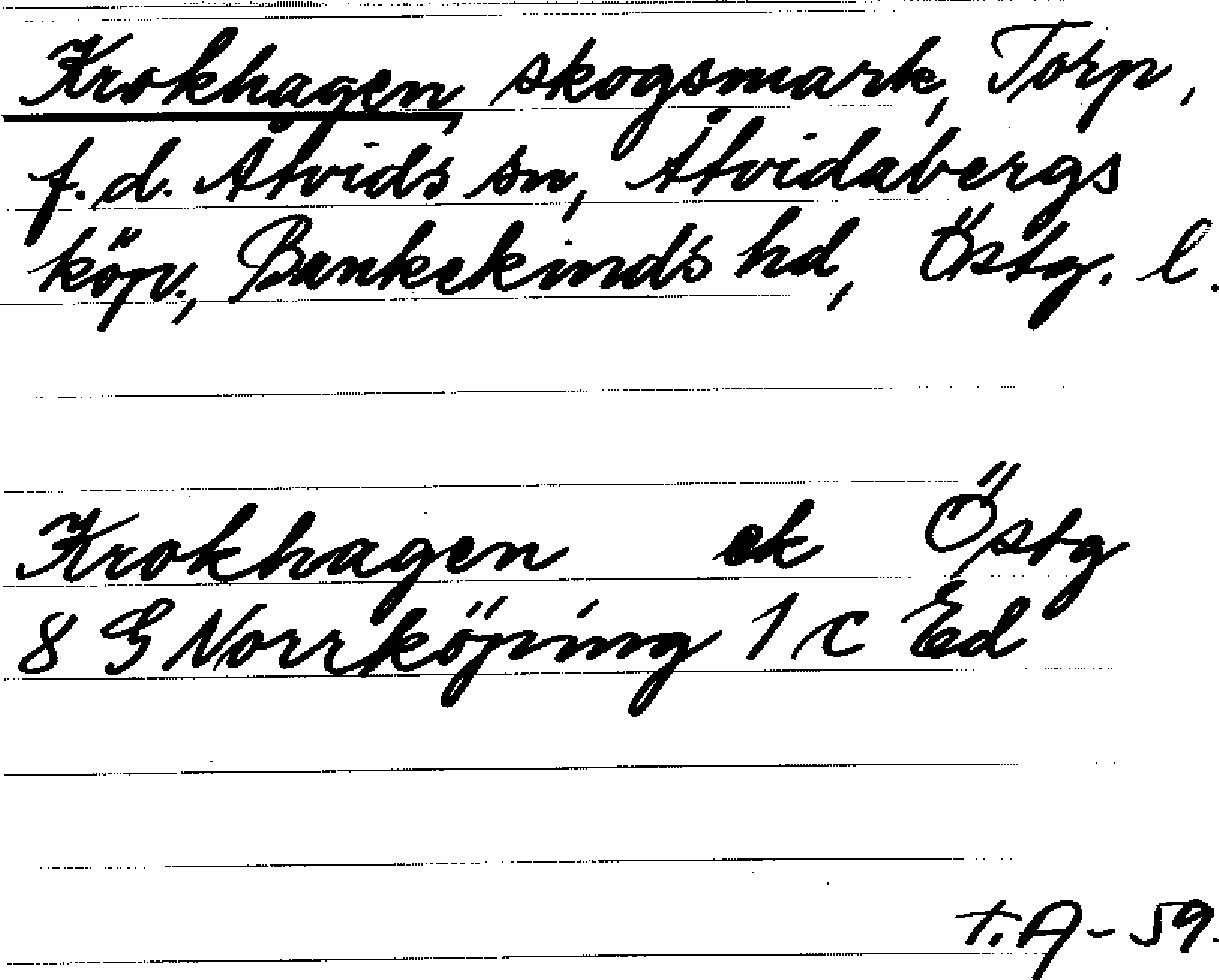 Krokhagen, skogsmark, Torp,
f.d. Åtvids sn, Åtvidabergs
köp., Bankekinds hd, Östg. l.
Krokhagen ek Östg
8 G Norrköping 1 c Ed
t.A-59.